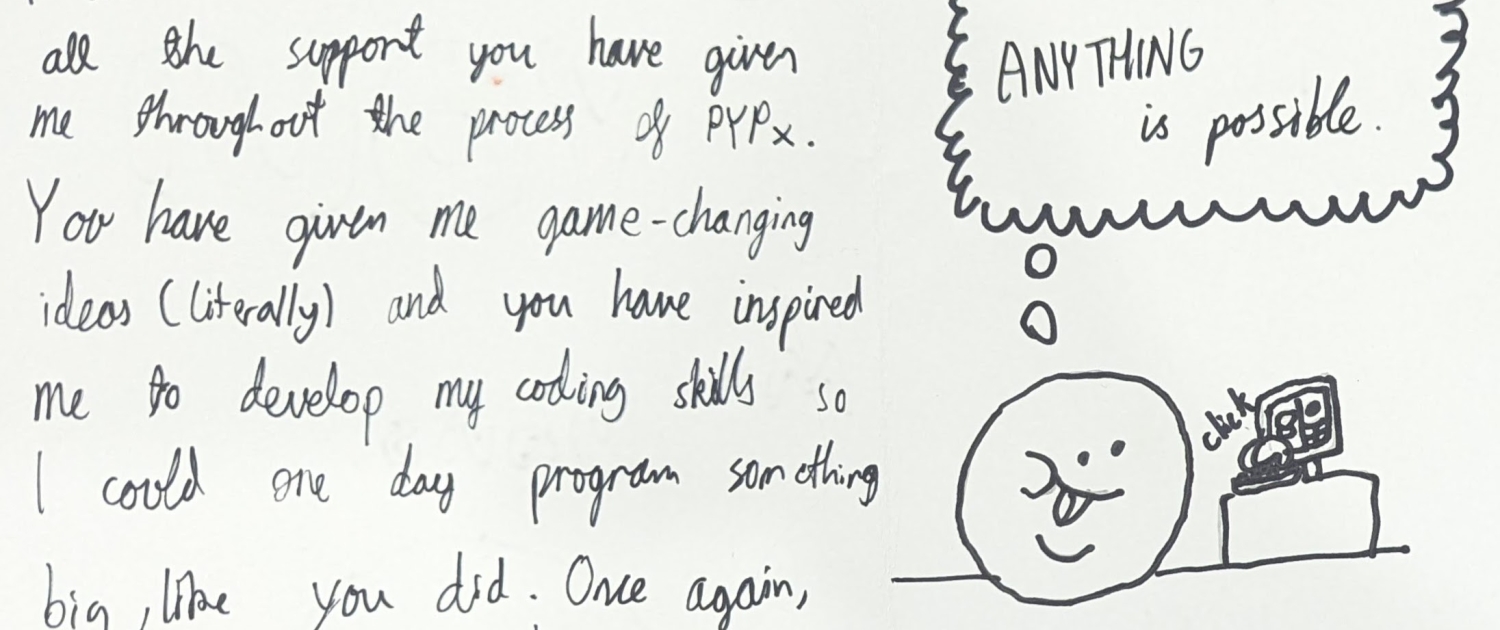 all the support you have given
me throughout the process of PYPx.
You have given me game-changing
ideas (literally) and you have inspired
me to develop my coding skills so
I could one day program something
big, like you did. Once again,
ANYTHING
is possible.
click